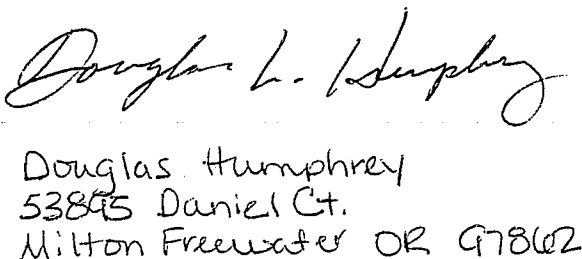 Douglas L. Humphrey
Douglas Humphrey
53895 Daniel Ct.
Milton Freewater OR 97862